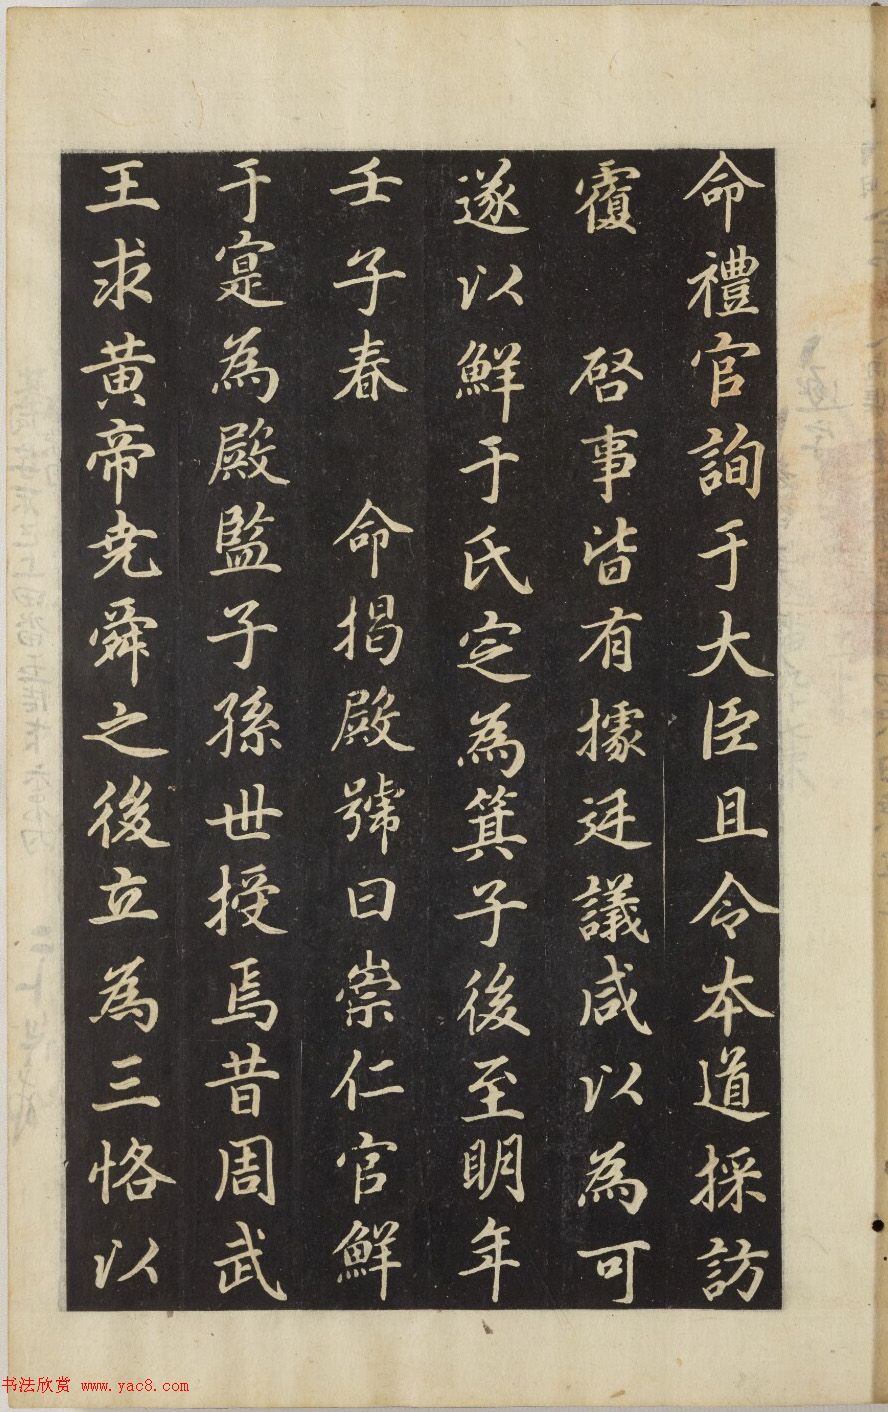 命禮官詢于大臣且令本道採訪
覆　啓事皆有據廷議咸以為可
遂以鮮于氏定為箕子後至明年
壬子春　命揭殿號曰崇仁官鮮
于寔為殿監子孫世授焉昔周武
王求黄帝尭舜之後立為三恪以
书法欣赏 www.yac8.com